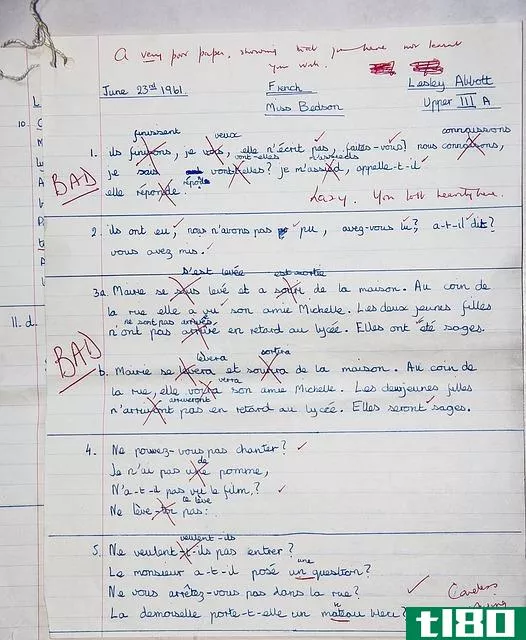 A very poor paper, showing that you have not learnt
your work.
June 23rd 1961. French Lesley Abbott
Miss Bedson Upper III A
finissent veux connaissons
1. ils finissons, je vous, elle n'écrit pas, faites-vous? nous connaisons,
vont-elles m'assieds
je sais vont-elles? je m'assied, appelle-t-il
répond
elle réponde.
BAD
Lazy. You lost heavily here.
2. ils ont eu, nous n'avons pas pu, avez-vous lu? a-t-il dit?
vous avez mis.
s'est levée est sortie
3a. Marie se levé et a de la maison. Au coin de
la rue elle a vu son amie Michelle. Les deux jeunes filles
ne sont pas arrivés
n'ont pas arrivé en retard au lycée. Elles ont été sages.
BAD
lèvera sortira
b. Marie se levera et de la maison. Au coin de
verra
la rue, elle son amie Michelle. Les deux jeunes filles
arriveront
n'arriveront pas en retard au lycée. Elles seront sages.
4. Ne pouvez-vous pas chanter?
de
Je n'ai pas une pomme,
N'a-t-il pas vu le film,?
te lève
Ne lève-toi pas:
veulent-ils
5. Ne veulent-t-ils pas entrer?
une
Le monsieur a-t-il posé un question?
Ne vous arrêtez-vous pas dans la rue?
La demoiselle porte-t-elle un mateau bleu?
Careless
10.
11. d.
tl80